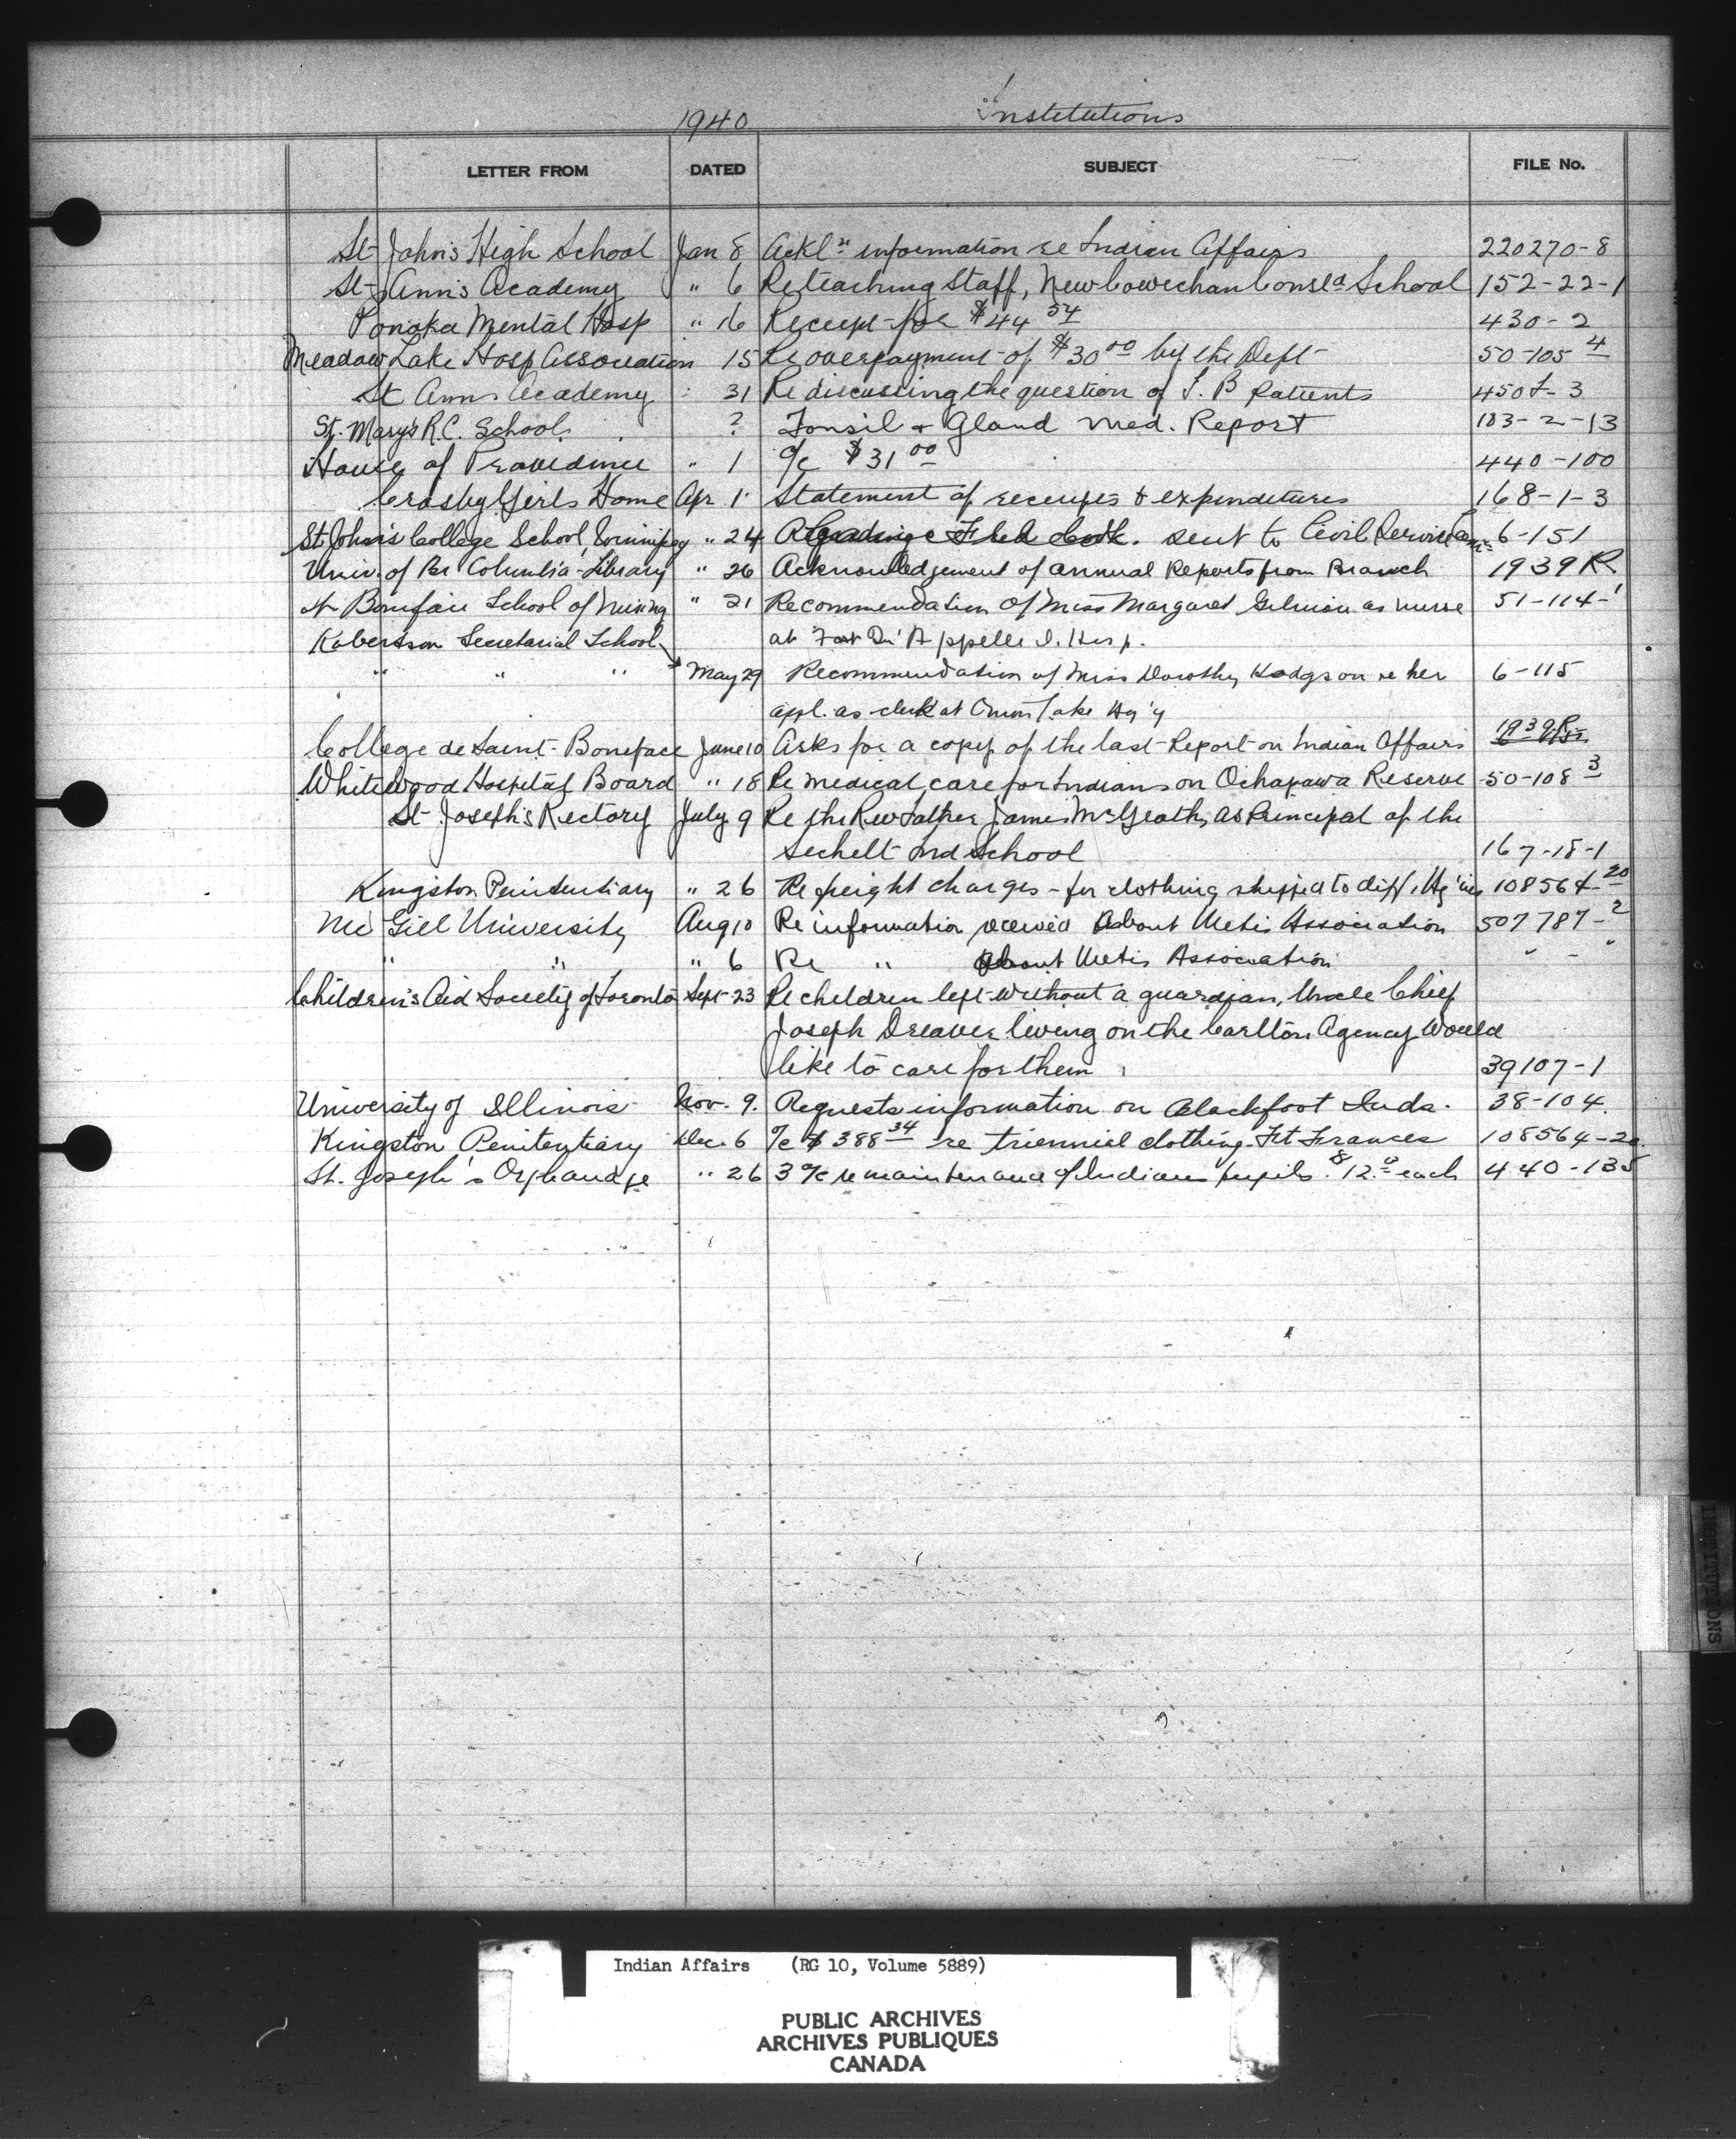 1940 Institutions
LETTER FROM DATED SUBJECT FILE No.
St John's High School Jan 8 Ackl'n information re Indian Affairs 220270-8
St Ann's Academy " 6 Re teaching Staff, New Cowichan Consl'd School 152-22-1
Ponoka Mental Hosp " 16 Receipt for $44 54 430-2
Meadow Lake Hosp Association 15 Re overpayment of $30 00 by the Dept 50-105 4
St Anns Academy " 31 Re discussing the question of T.B Patients 450t-3
St. Mary's R.C. School ? Tonsil + Gland Med. Report 183-2-13
House of Providence " 1 a/c $31 00 440-100
Crosby Girls Home Apr 1 Statement of receipts & expenditures 168-1-3
St John's College School, Winnipeg " 24 sent to Civil Service Com 6-151
Univ. of Br Columbia Library " 26 Acknowledgement of annual Reports from Branch 1939 R
St Boniface School of Nursing " 21 Recommendation of Miss Margaret as nurse 51-114-1
Robertson Secretarial School at Fort Qu'Appelle I. Hosp.
" " " May 29 Recommendation of Miss Dorothy Hodgson re her 6-115
appl. as clerk at Onion Lake Ag'y
College de Saint-Boniface June 10 Asks for a copy of the last Report on Indian Affairs 1939R
Whitewood Hospital Board " 18 Re medical care for Indians on Ochapawa Reserve 50-108 3
St Joseph's Rectory July 9 Re the Rev Father James McGrath, as Principal of the
Sechelt Ind School 167-18-1
Kingston Penitentiary " 26 Re freight charges - for clothing shipped to diff. Ag'ies 108564-20
McGill University Aug 10 Re information received about Metis Association 507787-2
" " " 6 Re " about Metis Association " "
Children's Aid Society of Toronto Sept 23 Re children left without a guardian, Uncle Chief
Joseph Dreaver living on the Carlton Agency Would
like to care for them 39107-1
University of Illinois Nov. 9. Requests information on Blackfoot Inds. 38-104.
Kingston Penitentiary Dec. 6 a/c $388 34 re triennial clothing Ft Frances 108564-20
St. Joseph's Orphanage " 26 3 a/c re maintenance of Indian pupils $12.00 each 440-135
INSTITUTIONS
Indian Affairs (RG 10, Volume 5889)
PUBLIC ARCHIVES
ARCHIVES PUBLIQUES
CANADA